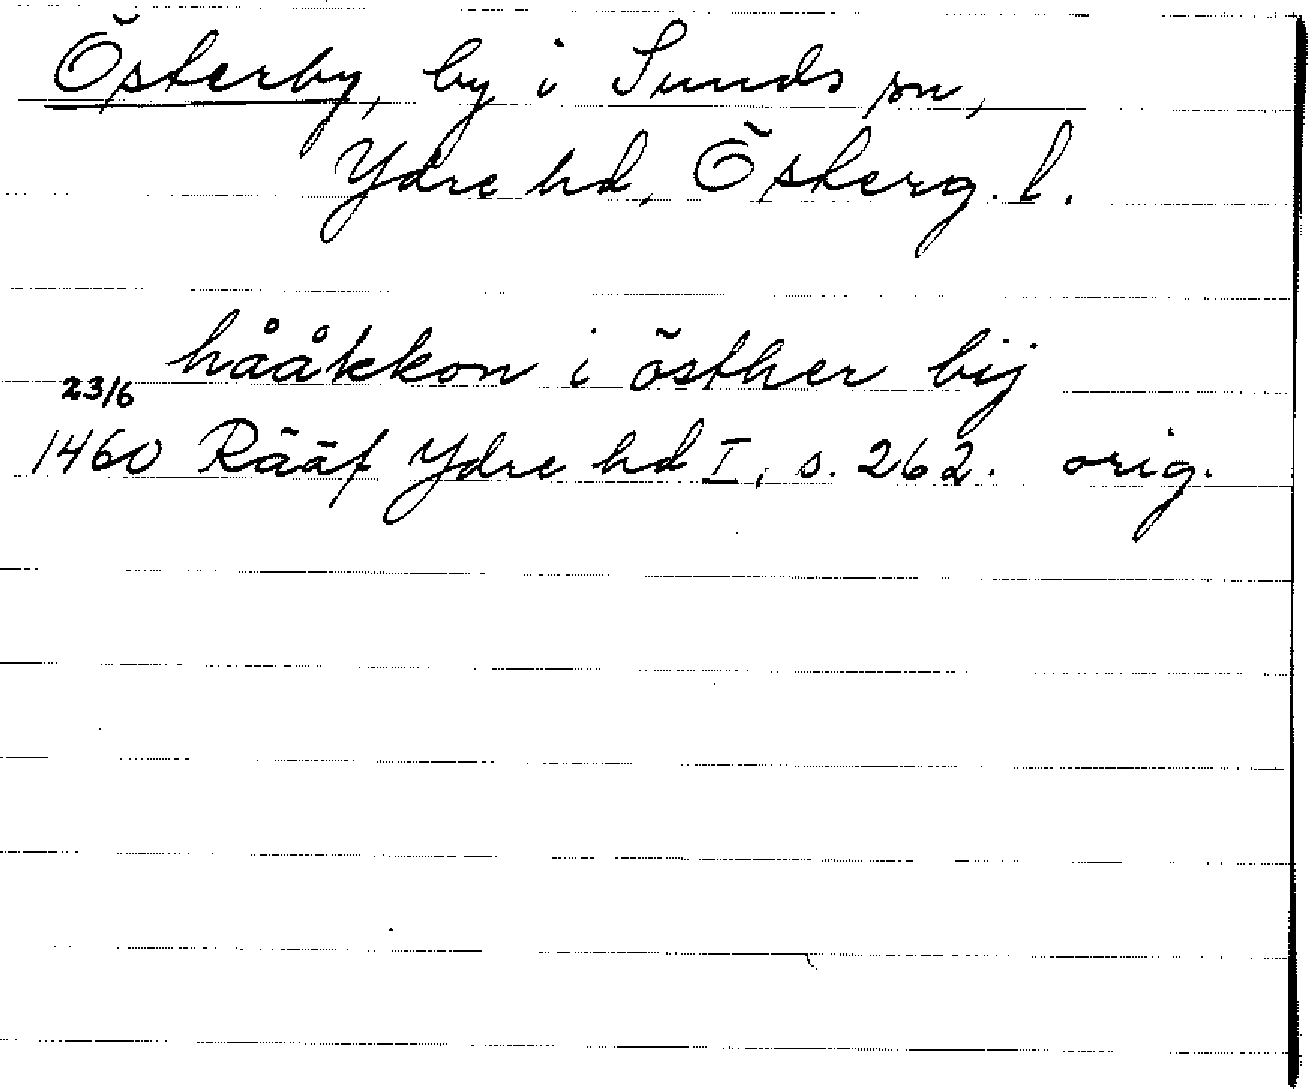 Österby, by i Sunds sn,
Ydre hd, Österg. l.
hååkkon i östher bij
23/6
1460 Rääf Ydre hd I, s. 262. orig.